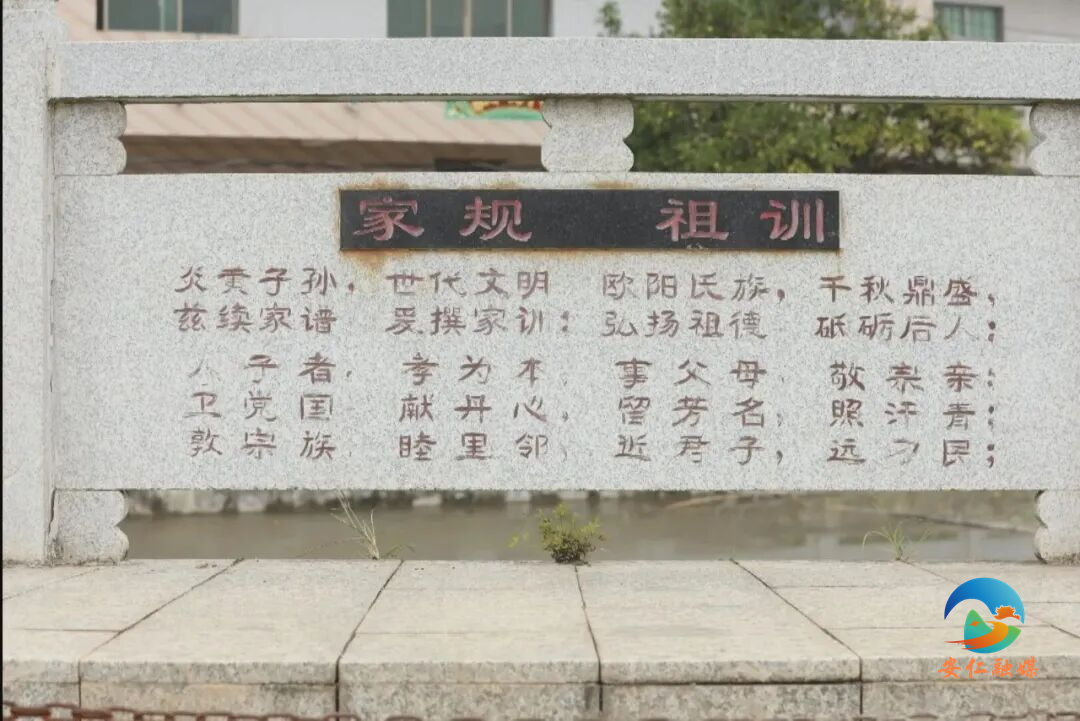 家规 祖训
炎黄子孙，世代文明 欧阳氏族，千秋鼎盛，
兹续家谱 爰撰家训：弘扬祖德 砥砺后人；
人子者，孝为本，事父母，敬素亲；
卫党国 献丹心，留芳名，照汗青；
敦宗族 睦里邻，近君子，远刁民；
安仁融媒